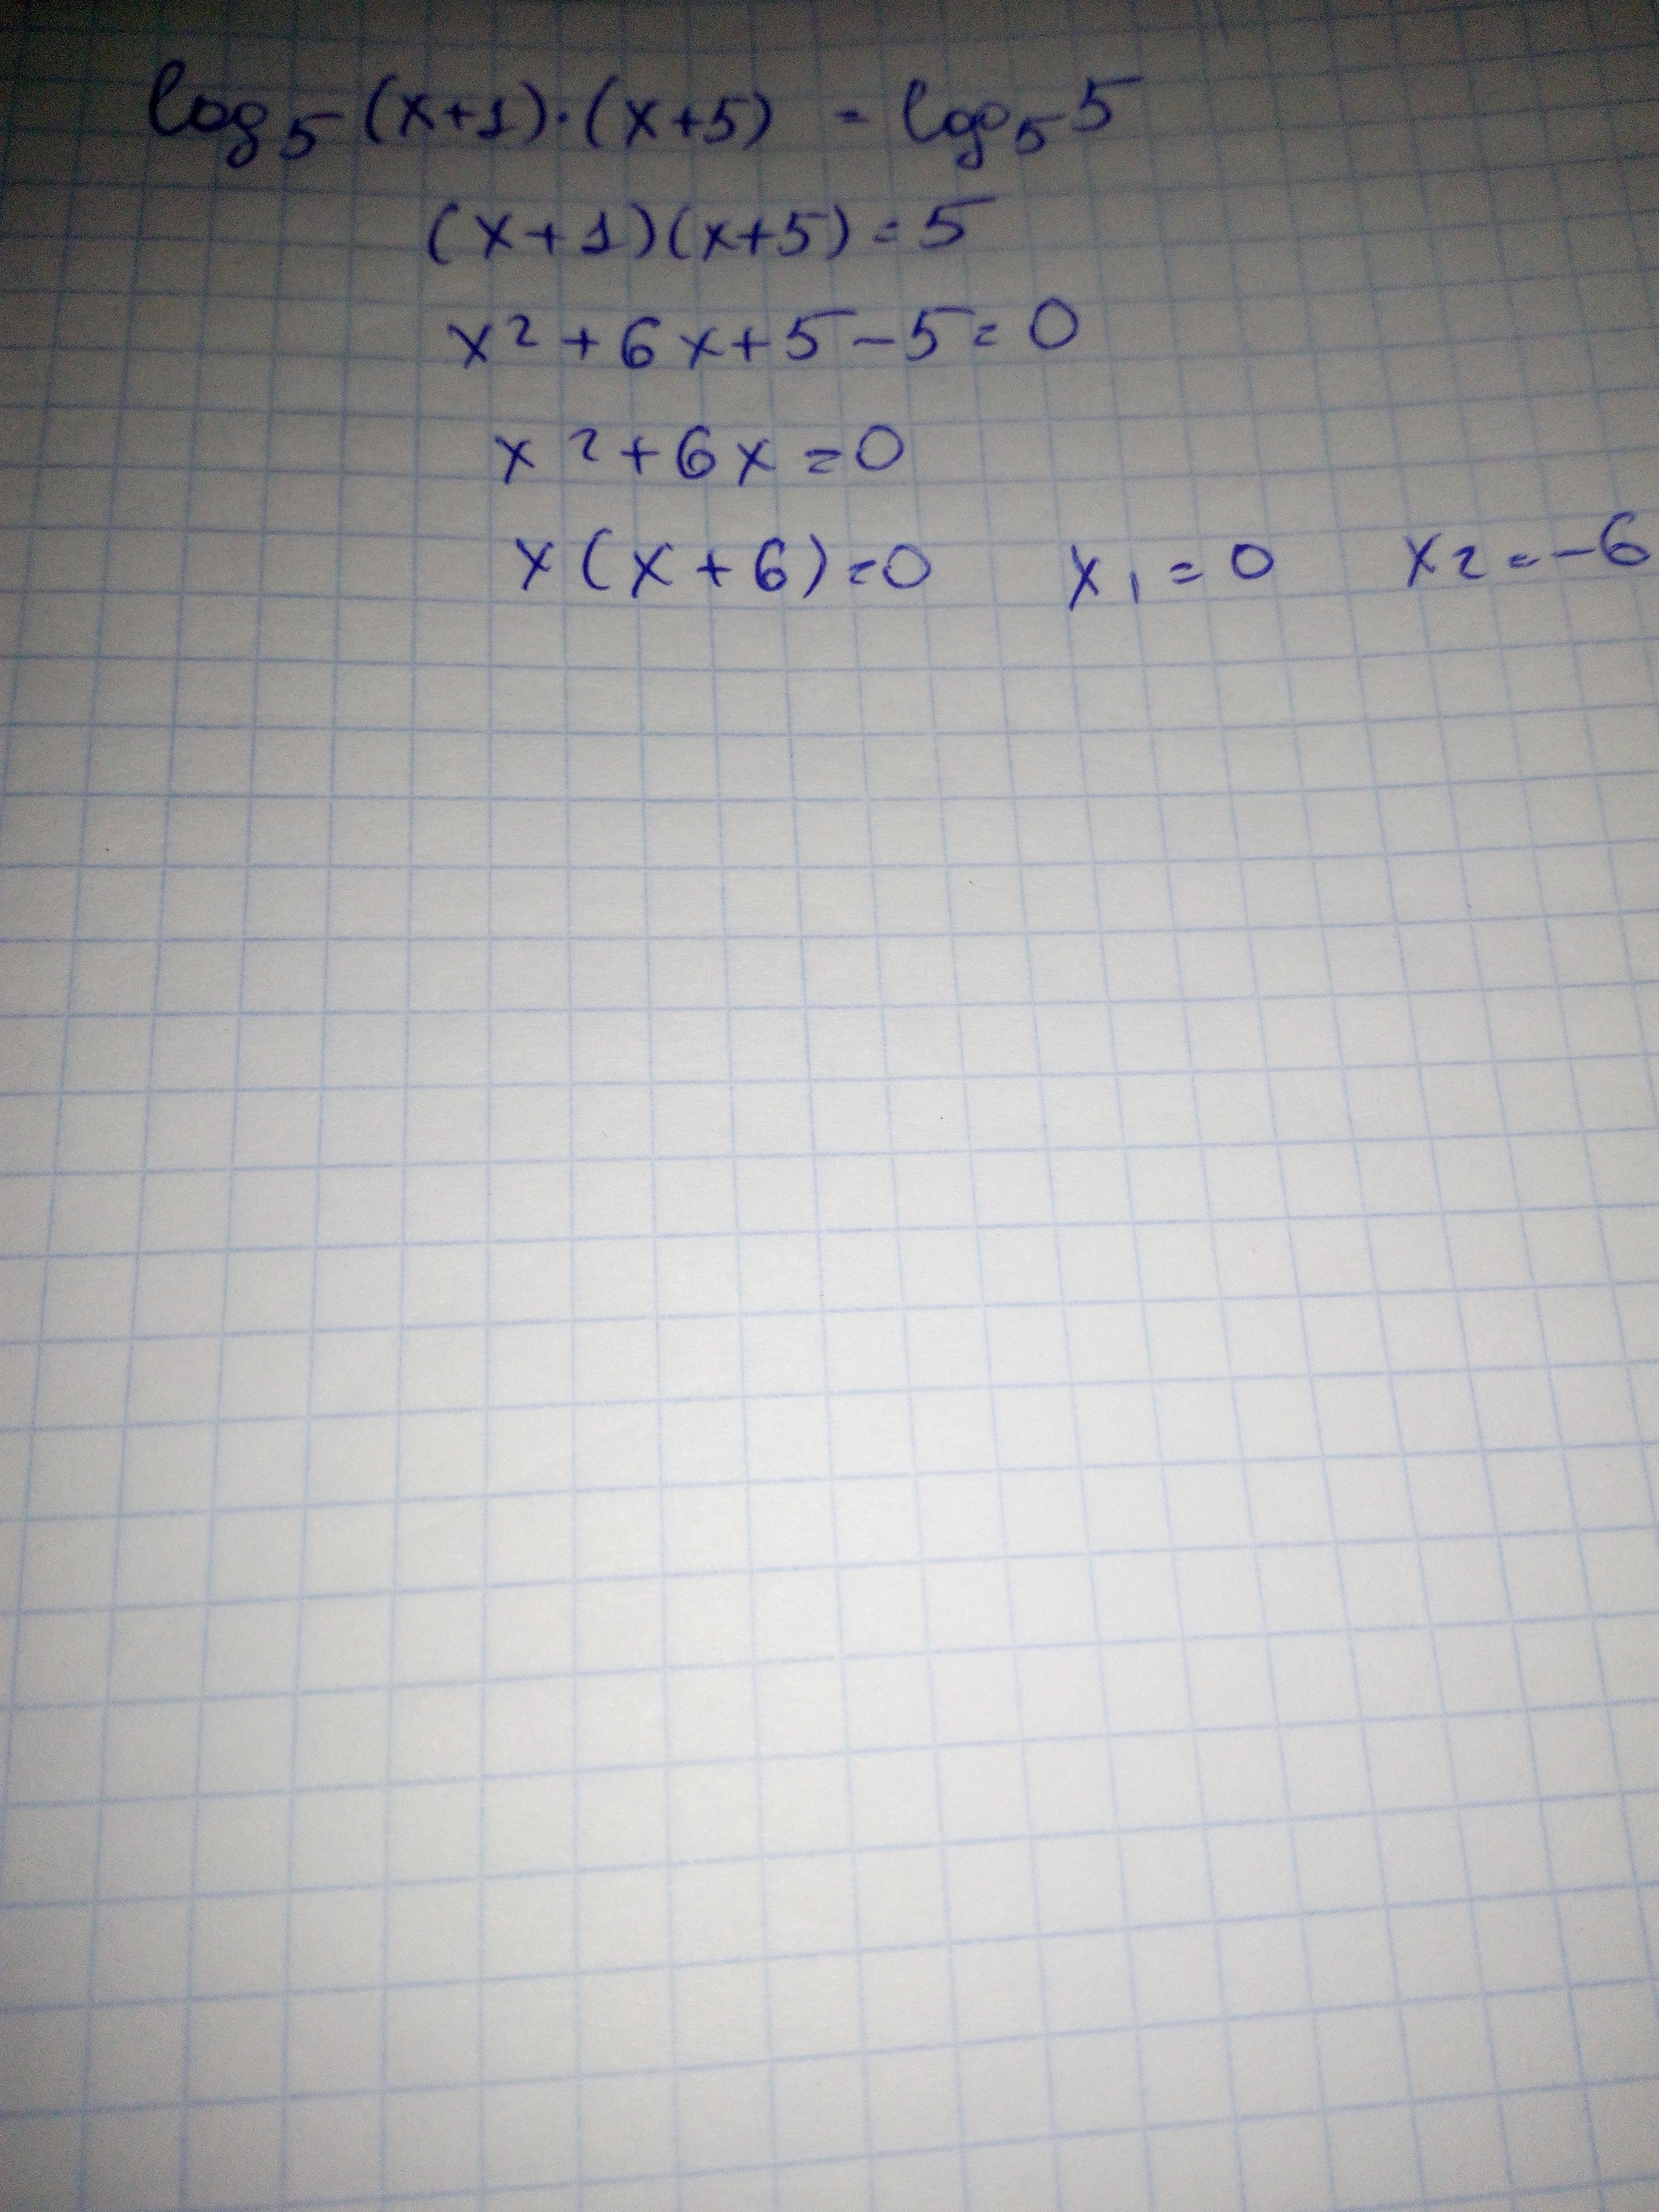 log₅(x+1)·(x+5) = log₅5
(x+1)(x+5)=5
x²+6x+5-5=0
x²+6x=0
x(x+6)=0 x₁=0 x₂=-6